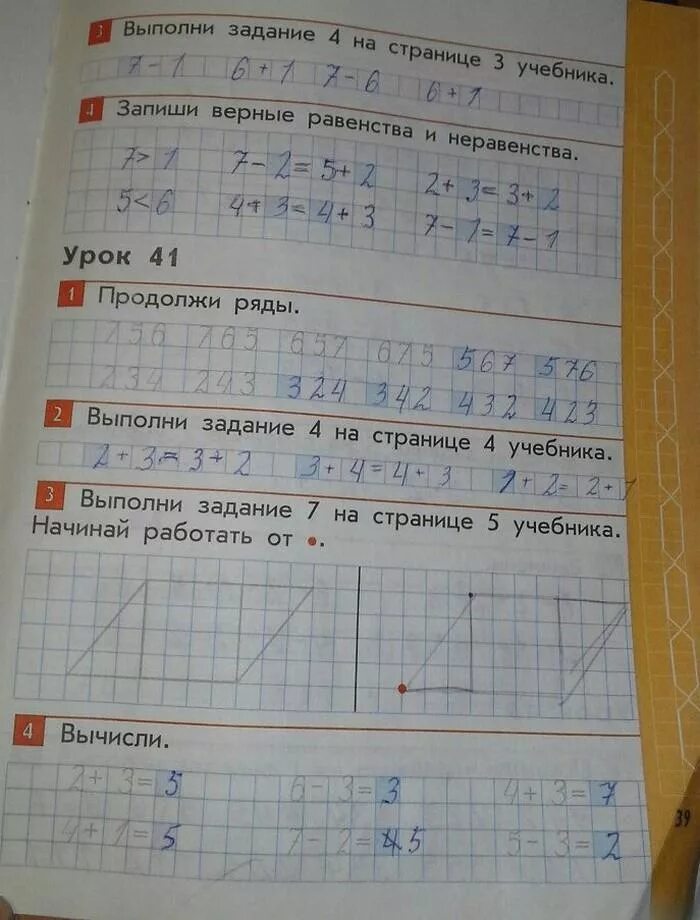 3 Выполни задание 4 на странице 3 учебника.
7-1 6+1 7-6 6+1
4 Запиши верные равенства и неравенства.
7>1 7-2=5+2 2+3=3+2
5<6 4+3=4+3 7-1=7-1
Урок 41
1 Продолжи ряды.
756 765 657 675 567 576
234 243 324 342 432 423
2 Выполни задание 4 на странице 4 учебника.
2+3=3+2 3+4=4+3 1+2=2+1
3 Выполни задание 7 на странице 5 учебника.
Начинай работать от •.
4 Вычисли.
2+3=5 6-3=3 4+3=7
39
4+1=5 7-2=45 5-3=2